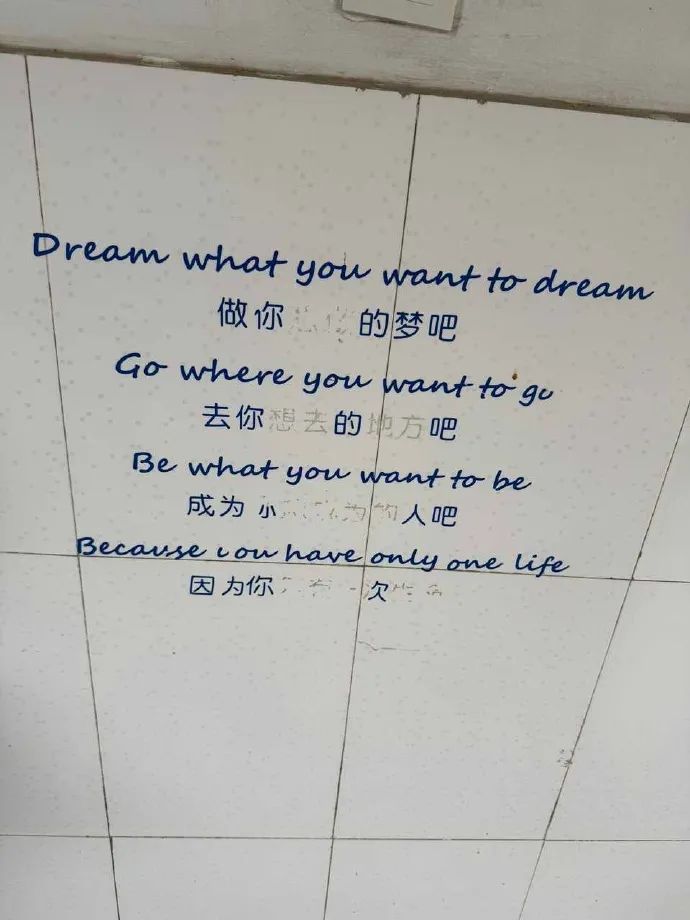 Dream what you want to dream
做你 的梦吧
Go where you want to go
去你想去的地方吧
Be what you want to be
成为 为的人吧
Because you have only one life
因为你 一次